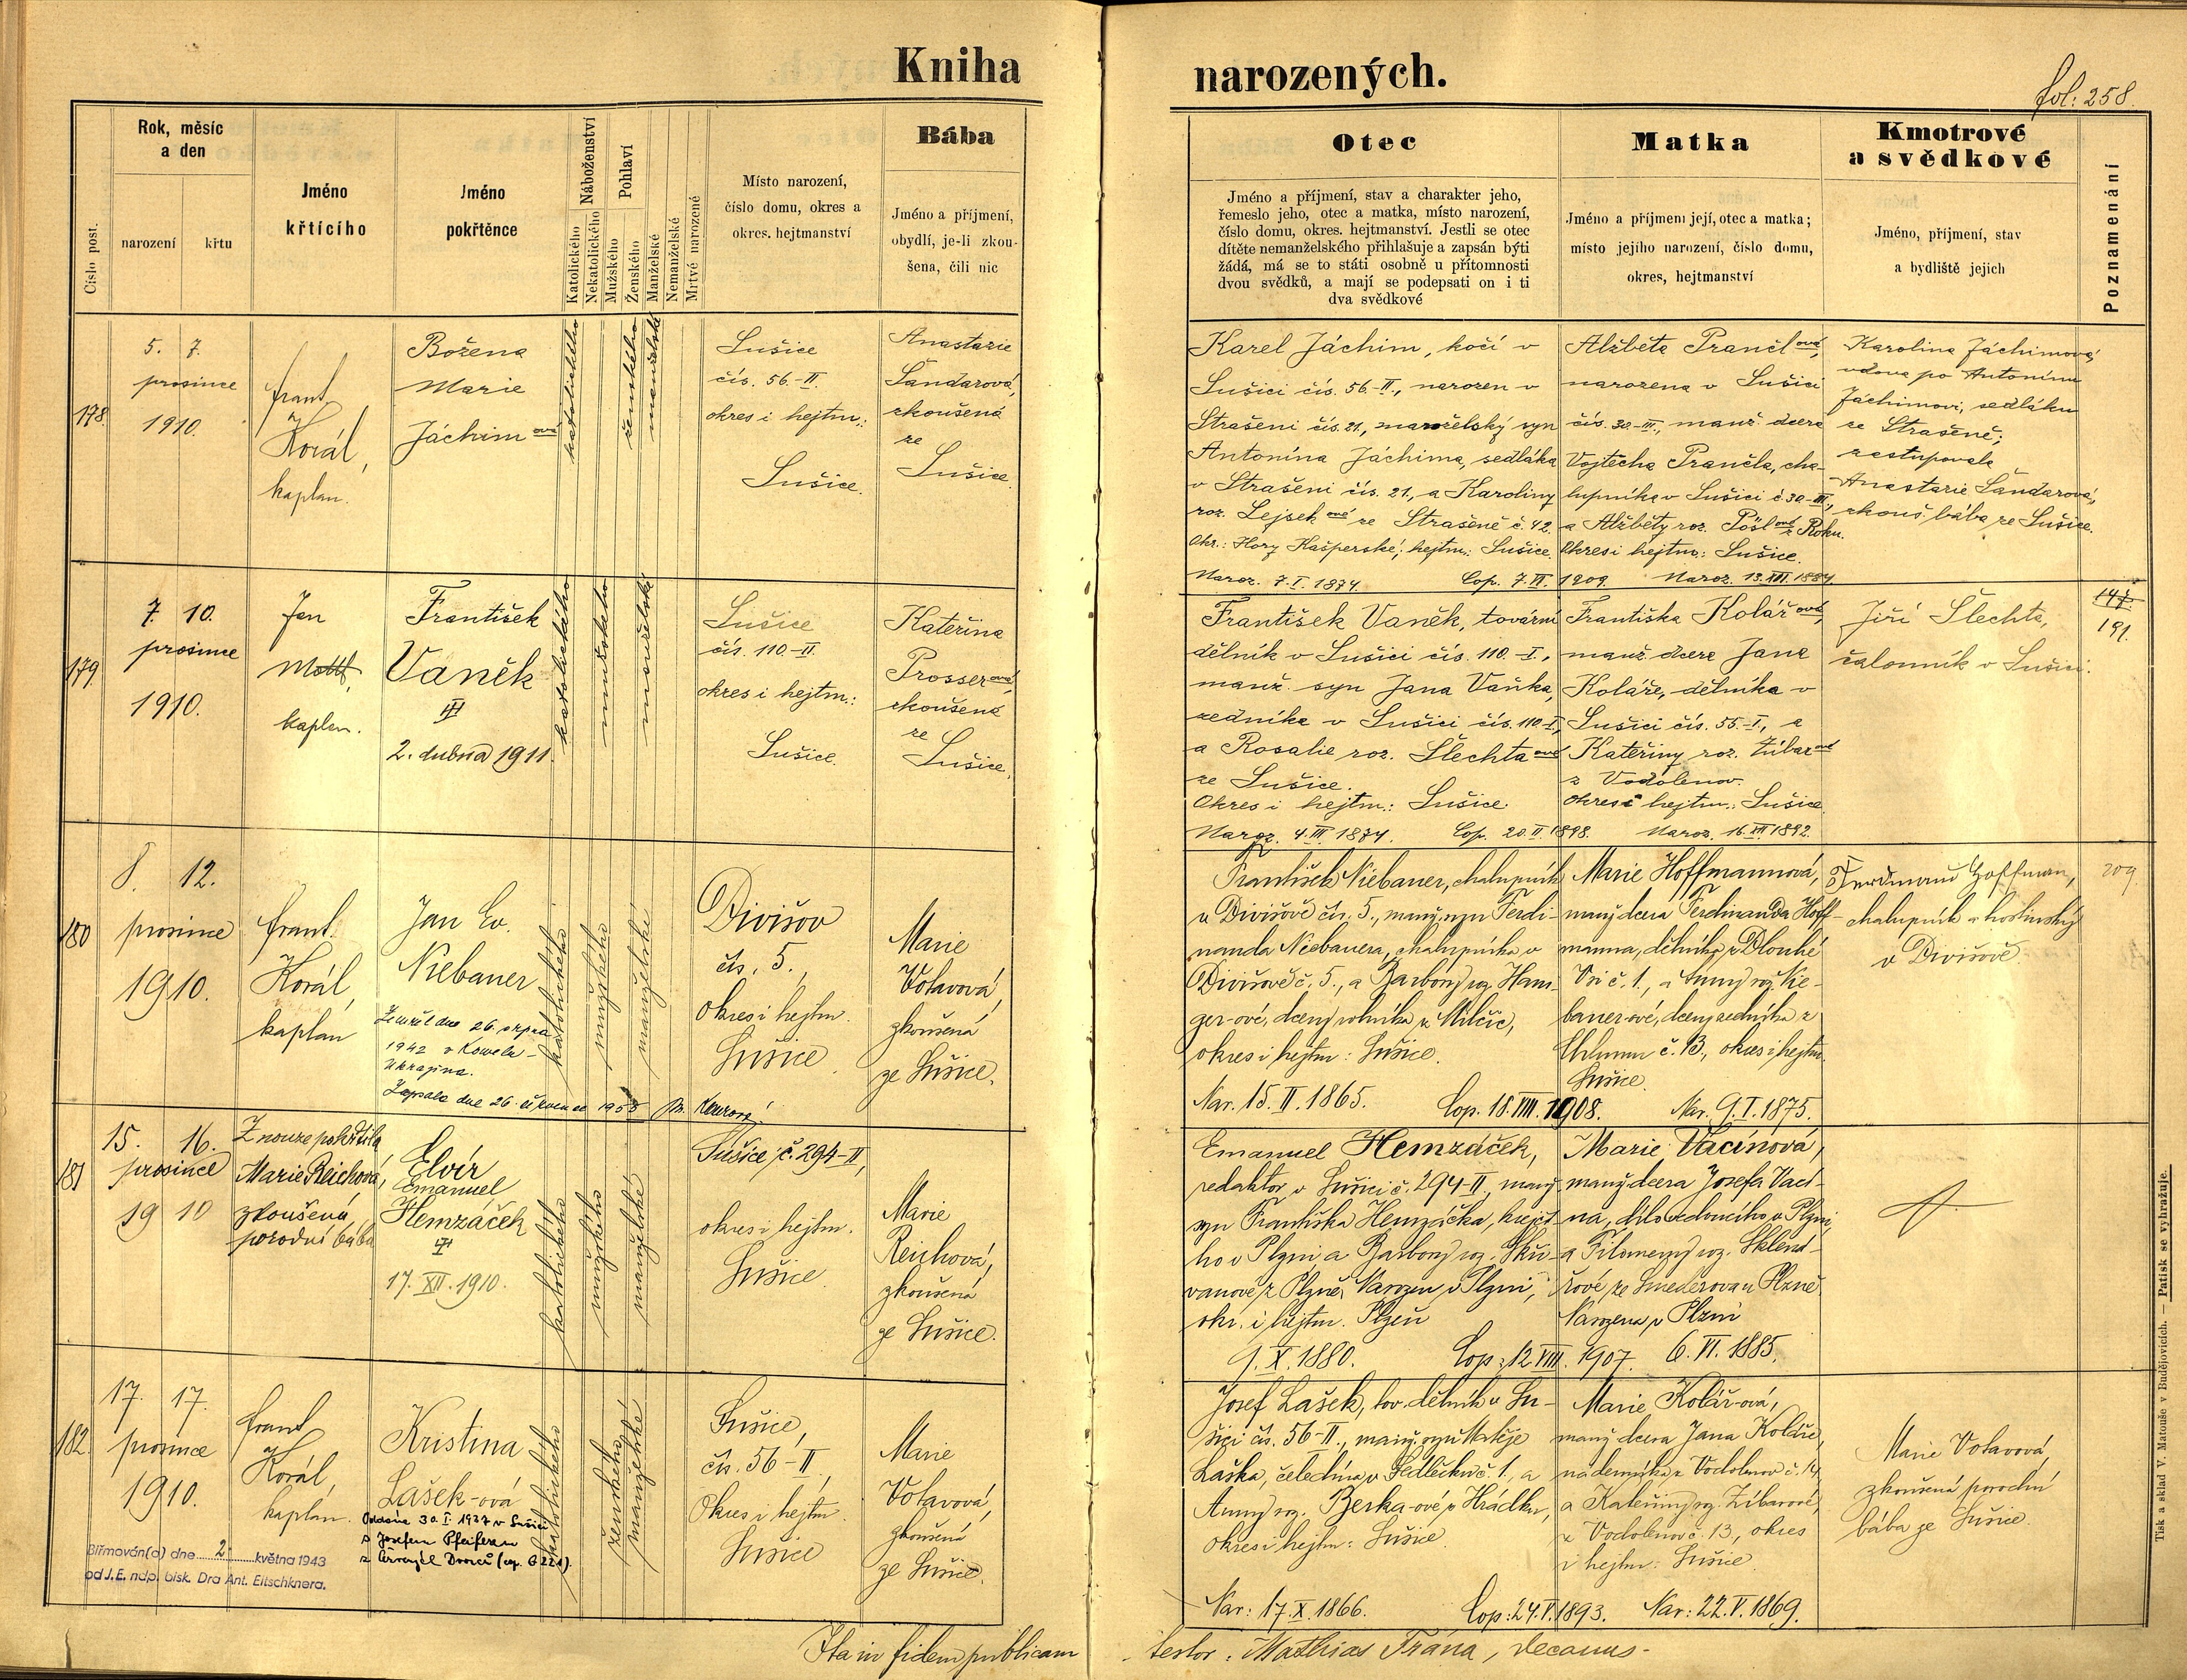 Kniha
narozených.
fol: 258.
Číslo post.
Rok, měsíc
a den
narození
křtu
Jméno
křtícího
Jméno
pokřtěnce
Náboženství
Katolického
Nekatolického
Pohlaví
Mužského
Ženského
Manželské
Nemanželské
Mrtvě narozené
Místo narození,
číslo domu, okres a
okres. hejtmanství
Bába
Jméno a příjmení,
obydlí, je-li zkou-
šena, čili nic
Otec
Jméno a příjmení, stav a charakter jeho,
řemeslo jeho, otec a matka, místo narození,
číslo domu, okres. hejtmanství. Jestli se otec
dítěte nemanželského přihlašuje a zapsán býti
žádá, má se to státi osobně u přítomnosti
dvou svědků, a mají se podepsati on i ti
dva svědkové
Matka
Jméno a příjmení její, otec a matka;
místo jejího narození, číslo domu,
okres, hejtmanství
Kmotrové
a svědkové
Jméno, příjmení, stav
a bydliště jejich
Poznamenání
178.
5. 7.
prosince
1910.
Frant.
Korál,
kaplan.
Božena
Marie
Jáchimová
katolického
ženského
manželské
Sušice
čís. 56-II.
okres i hejtm.:
Sušice.
Anastazie
Šandarová,
zkoušená
ze
Sušice.
Karel Jáchim, kočí v
Sušici čís. 56-II., narozen v
Strašeni čís. 21., manželský syn
Antonína Jáchima, sedláka
v Strašeni čís. 21., a Karoliny
roz. Lejsekové ze Strašeně č. 42.
Okr.: Hory Kašperské; hejtm.: Sušice.
Naroz. 7.I. 1874.
Cop. 7.VI. 1909.
Alžběta Prančlová,
narozena v Sušici
čís. 30-III., manž. dcera
Vojtěcha Prančla, cha-
lupníka v Sušici č. 30-III,
a Alžběty roz. Pöslové z Roku.
Okres i hejtm.: Sušice.
Naroz. 13. XII. 1884.
Karolina Jáchimová,
vdova po Antonínu
Jáchimovi, sedláku
ze Strašeně;
zastupovala
Anastazie Šandarová,
zkouš. bába ze Sušice.
179.
7. 10.
prosince
1910.
Jan
kaplan.
František
Vaněk
2. dubna 1911.
katolického
mužského
manželské
Sušice
čís. 110-II.
okres i hejtm.:
Sušice.
Kateřina
Prosserová,
zkoušená
ze
Sušice.
František Vaněk, tovární
dělník v Sušici čís. 110.-I.,
manž. syn Jana Vaňka,
zedníka v Sušici čís. 110-I,
a Rosalie roz. Šlechtaové
ze Sušice.
Okres i hejtm.: Sušice.
Naroz. 4. III. 1874.
Cop. 20.II. 1898.
Františka Kolářová,
manž. dcera Jana
Koláře, dělníka v
Sušici čís. 55-I., a
Kateřiny roz. Žibarové
z Vodolenov.
Okres i hejtm.: Sušice
Jiří Šlechta,
čalouník v Sušici.
147.
191.
180
8. 12.
prosince
1910.
Frant.
Korál,
kaplan
Jan Ev.
Niebauer
Zemřel dne 26. srpna
1942 v Kowelu -
Ukrajina.
Zapsáno dne 26. července
katolického
mužského
manželské
Divišov
čís. 5.,
okres i hejtm.
Sušice.
Marie
Votavová,
zkoušená
ze Sušice.
František Niebauer, chalupník
v Divišově čís. 5., manž. syn Ferdi-
nanda Niebauera, chalupníka v
Divišově č. 5., a Barbory roz. Hans-
ger-ové, dcery rolníka z Milčic,
okres i hejtm: Sušice.
Nar. 15. II. 1865.
Cop. 18. VIII. 1908.
Marie Hoffmannová,
manž. dcera Ferdinanda Hoff-
manna, dělníka z Dlouhé
Vsi č. 1., a Anny roz. Nie-
bauer-ové, dcery sedníka z
Chlumu č. 13., okres i hejtm.
Sušice.
Nar. 9. I. 1875.
Ferdinand Hoffman,
chalupník a hostinský
v Divišově.
209
181
15. 16.
prosince
19 10
Z nouze pokřtila
Marie Reichová,
zkoušená
porodní bába
Elvír
Emanuel
Hemzáček
17. XII. 1910.
katolického
mužského
manželské
Sušice, č. 294-II,
okres i hejtm.
Sušice.
Marie
Reichová,
zkoušená
ze Sušice.
Emanuel Hemzáček,
redaktor v Sušici č. 294-II, manž.
syn Františka Hemzáčka, krejčí-
ho v Plzni a Barbory roz. Skři-
vanové z Plzně, Narozen v Plzni,
okr. i hejtm. Plzeň
9. X. 1880.
Cop: 12. VIII. 1907.
Marie Vacínová,
manž. dcera Josefa Vací-
na, dílovedoucího v Plzni,
a Filomeny roz. Sklená-
řové ze Smederova u Plzně
Narozena v Plzni
6. VI. 1885.
182.
17. 17.
prosince
1910.
Frant
Korál,
kaplan.
Kristina
Lašek-ová
Oddána 30. I. 1937 v Sušici
s Josefem Pfeiferem
z Červených Dvorců
Biřmován(a) dne 2. května 1943
od J.E. ndp. bisk. Dra Ant. Eltschknera.
katolického
ženského
manželské
Sušice,
čís. 56-II,
Okres i hejtm.
Sušice
Marie
Votavová,
zkoušená
ze Sušice.
Josef Lašek, tov. dělník v Su-
šici čís. 56-II., manž. syn Matěje
Laška, čeledína v Sedlečku č. 1., a
Anny roz. Berka-ové z Hrádku,
okres i hejtm: Sušice.
Nar: 17. X. 1866.
Cop: 24. V. 1893.
Marie Kolář-ová,
manž. dcera Jana Koláře,
nádeníka z Vodolenov č. 14,
a Kateřiny roz. Žibarové,
z Vodolenov č. 13., okres
i hejtm: Sušice.
Nar: 22. V. 1869.
Marie Votavová,
zkoušená porodní
bába ze Sušice.
Ita in fidem publicam
testor: Mathias Trána, decanus-
Tisk a sklad V. Matouše v Budějovicích. — Patisk se vyhražuje.